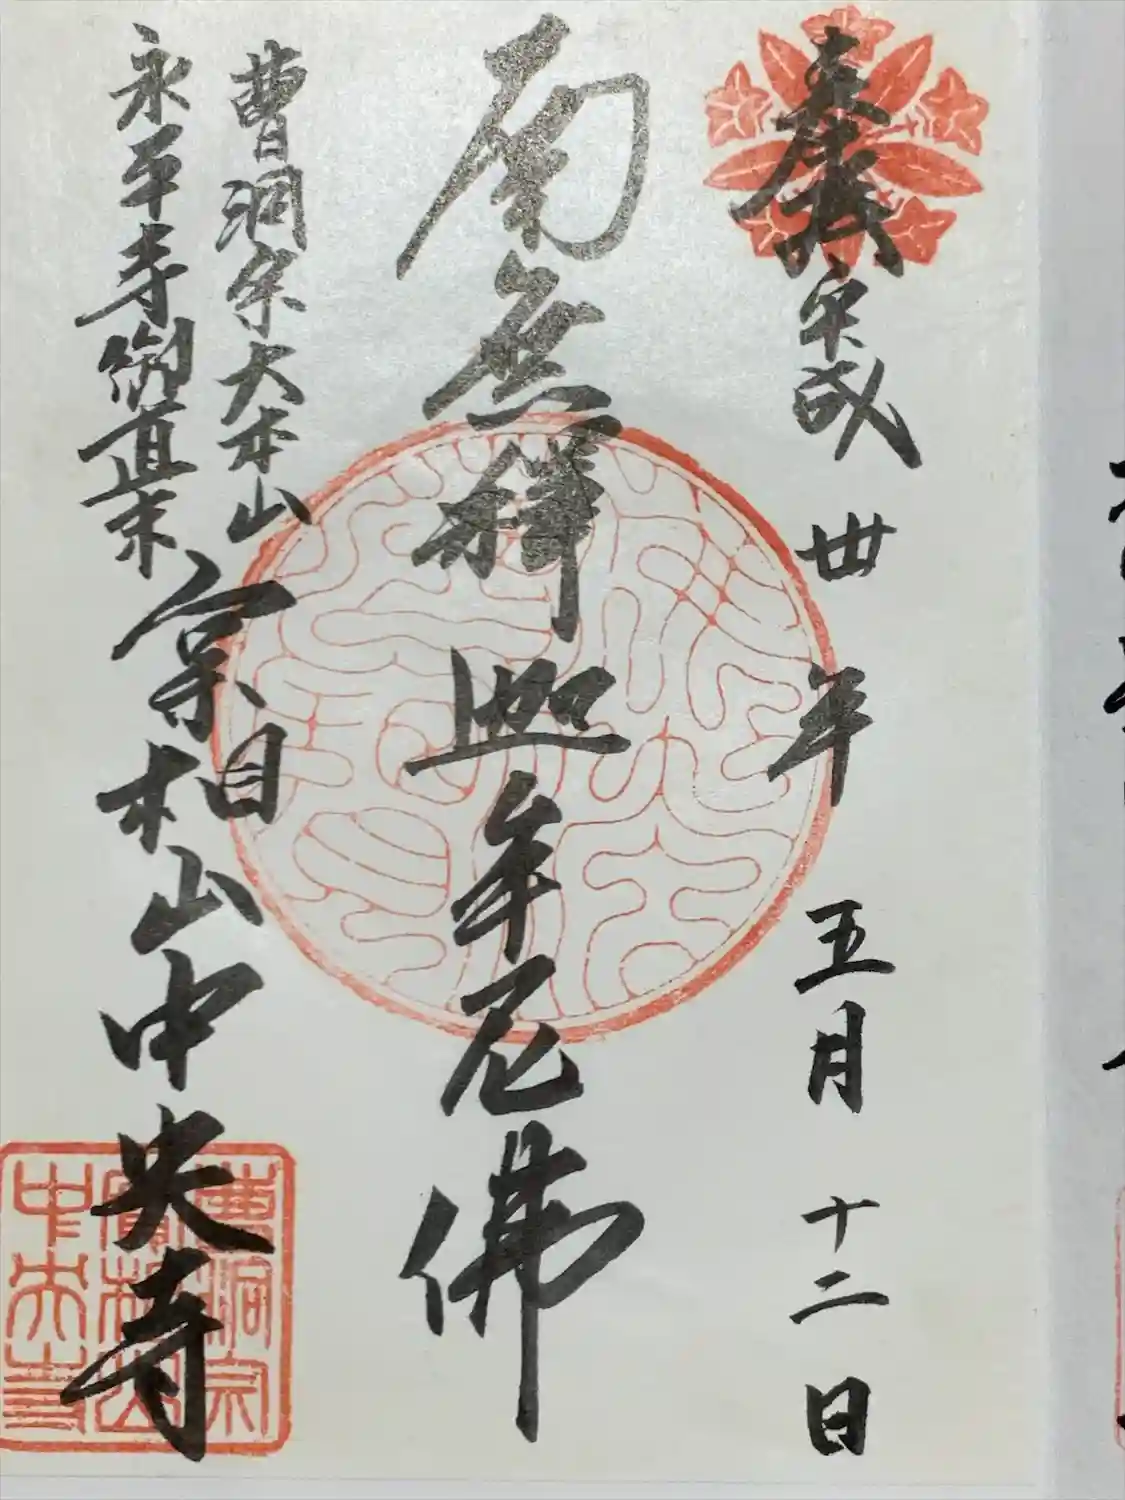 奉拝
平成丗年五月十二日
南無釋迦牟尼佛
曹洞宗大本山
永平寺御直末
宲相山中央寺
曹洞宗
實相山
中央寺